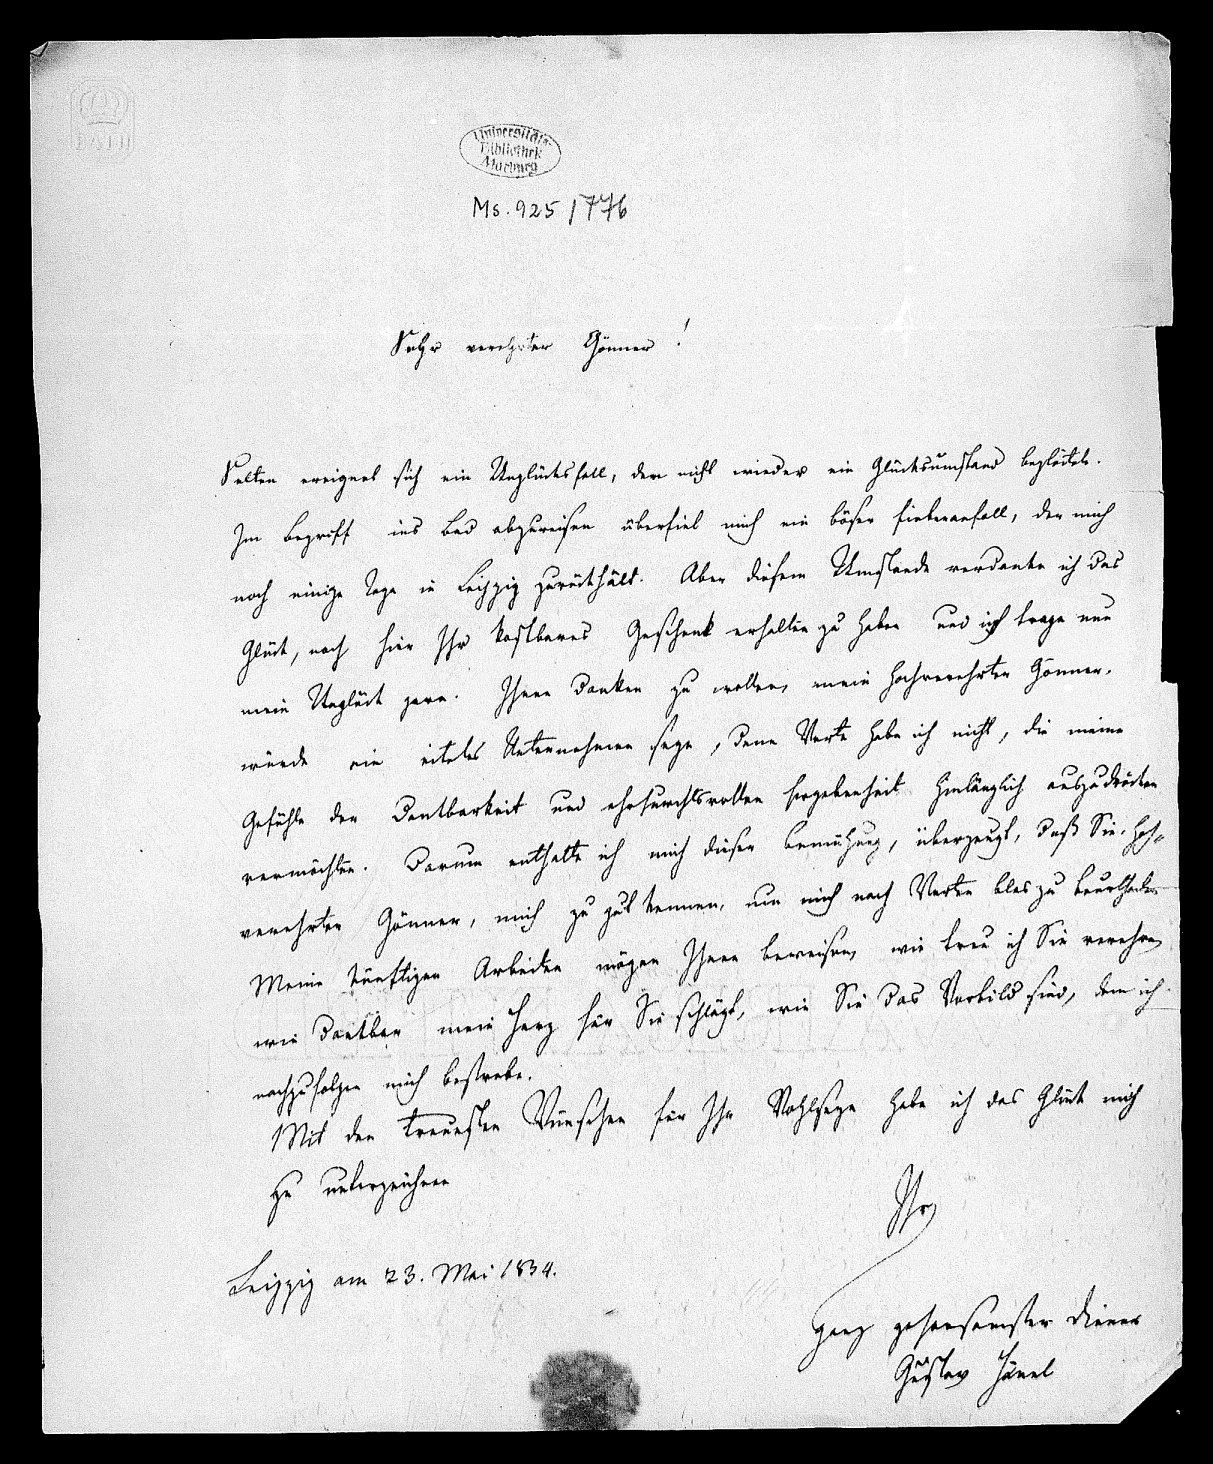 BATH
Universitäts-
Bibliothek
Marburg
Ms. 925/776
Sehr verehrter Gönner!
Selten ereignet sich ein Unglücksfall, den nicht wieder ein Glücksumstand begleitet.
Im Begriff ins Bad abzureisen überfiel mich ein böser Fieberanfall, der mich
noch einige Tage in Leipzig zurückhält. Aber diesem Umstande verdanke ich das
Glück, noch hier Ihr kostbares Geschenk erhalten zu haben und ich trage nun
mein Unglück gern. Ihnen danken zu wollen, mein hochverehrter Gönner,
würde ein eiteles Unternehmen seyn, denn Worte habe ich nicht, die meine
Gefühle der Dankbarkeit und ehrfurchtsvollen Ergebenheit hinlänglich auszudrücken
vermöchten. Darum enthalte ich mich dieser Bemühung, überzeugt, daß Sie, hoch-
verehrter Gönner, mich zu gut kennen, um mich nach Worten blos zu beurtheilen
Meine künftigen Arbeiten mögen Ihnen beweisen, wie treu ich Sie verehre,
wie dankbar mein Herz für Sie schlägt, wie Sie das Vorbild sind, dem ich
nachzufolgen mich bestrebe.
Mit den treuesten Wünschen für Ihr Wohlseyn habe ich das Glück mich
zu unterzeichnen
Ihr
Leipzig am 23. Mai 1834.
ganz gehorsamster Diener
Gustav Hänel